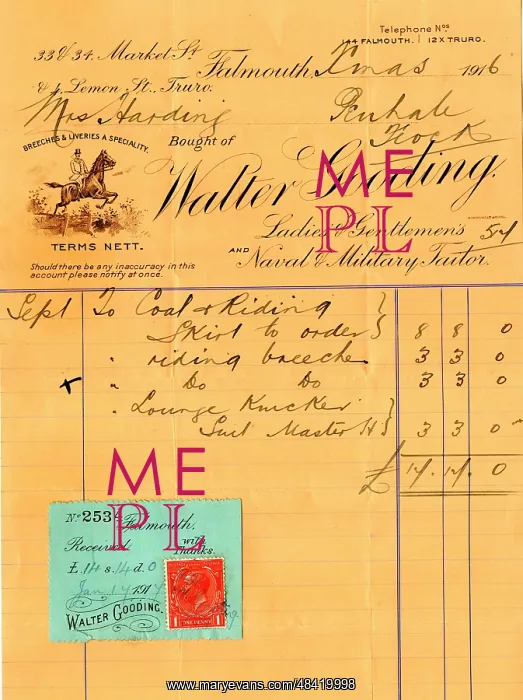 Telephone Nos
144 FALMOUTH. | 12X TRURO.
33 & 34, Market St Falmouth, Xmas 1916
& 4, Lemon St., Truro.
Mrs Harding Penhale
BREECHES & LIVERIES A SPECIALITY.
Bought of
Walter Gooding.
ME
PL
Ladies' & Gentlemen's 54
AND Naval & Military Tailor.
TERMS NETT.
Should there be any inaccuracy in this
account please notify at once.
Sept To Coat & Riding }
Skirt to order } 8 8 0
" riding breeches 3 3 0
x " Do Do 3 3 0
" Lounge Knicker }
Suit Master H } 3 3 0
£ 14. 14. 0
ME
PL
No 253 Falmouth,
Received with
Thanks.
£ 14 s. 14 d. 0
Jan 17 1917
WALTER GOODING.
1 ONE PENNY 1
www.maryevans.com/48419998